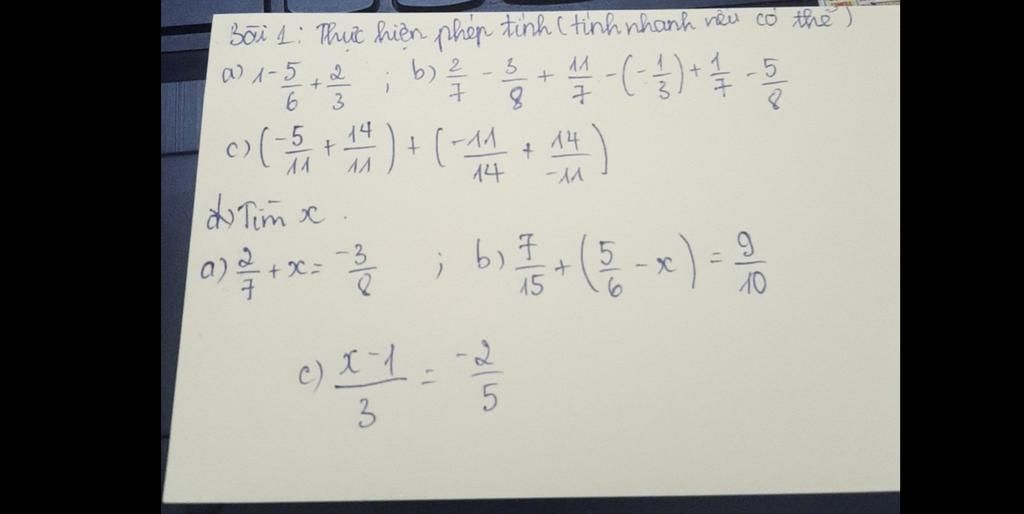 Bài 1: Thực hiện phép tính (tính nhanh nếu có thể)
a) 1 - 5/6 + 2/3 ; b) 2/7 - 3/8 + 11/7 - (-1/3) + 1/7 - 5/8
c) (-5/11 + 14/11) + (-11/14 + 14/-11)
d) Tìm x.
a) 2/7 + x = -3/8 ; b) 7/15 + (5/6 - x) = 9/10
c) x-1/3 = -2/5